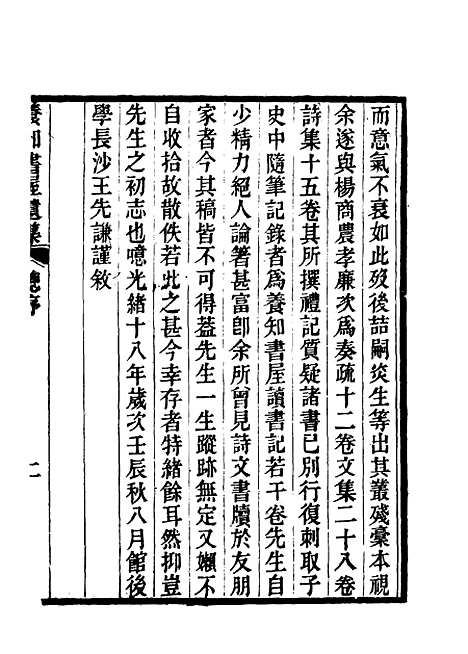 而意氣不衰如此歿後喆嗣炎生等出其叢殘稾本視
余遂與楊商農孝廉次爲奏疏十二卷文集二十八卷
詩集十五卷其所撰禮記質疑諸書已別行復刺取子
史中隨筆記錄者爲養知書屋讀書記若干卷先生自
少精力絕人論箸甚富卽余所曾見詩文書牘於友朋
家者今其稿皆不可得葢先生一生蹤跡無定又嬾不
自收拾故散佚若此之甚今幸存者特緒餘耳然抑豈
先生之初志也噫光緒十八年歲次壬辰秋八月館後
學長沙王先謙謹敘
養知書屋遺集 總序 二